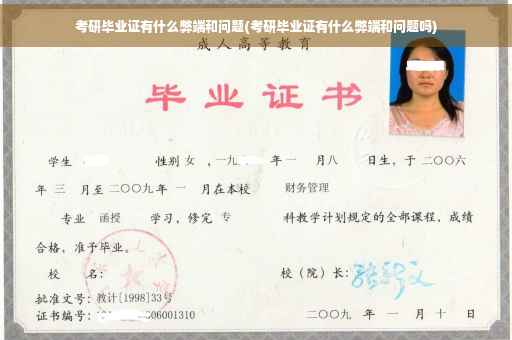 考研毕业证有什么弊端和问题(考研毕业证有什么弊端和问题吗)
成人高等教育
毕业证书
学生 性别 女 ，一九 年一 月八 日生，于二〇〇六
年 三 月至二〇〇九年 一 月在本校 财务管理
专业 函授 学习，修完 专 科教学计划规定的全部课程，成绩
合格，准予毕业。
校 名： 校（院）长：
批准文号：教计[1998]33号
证书编号： 06001310 二〇〇九 年 一 月 十 日